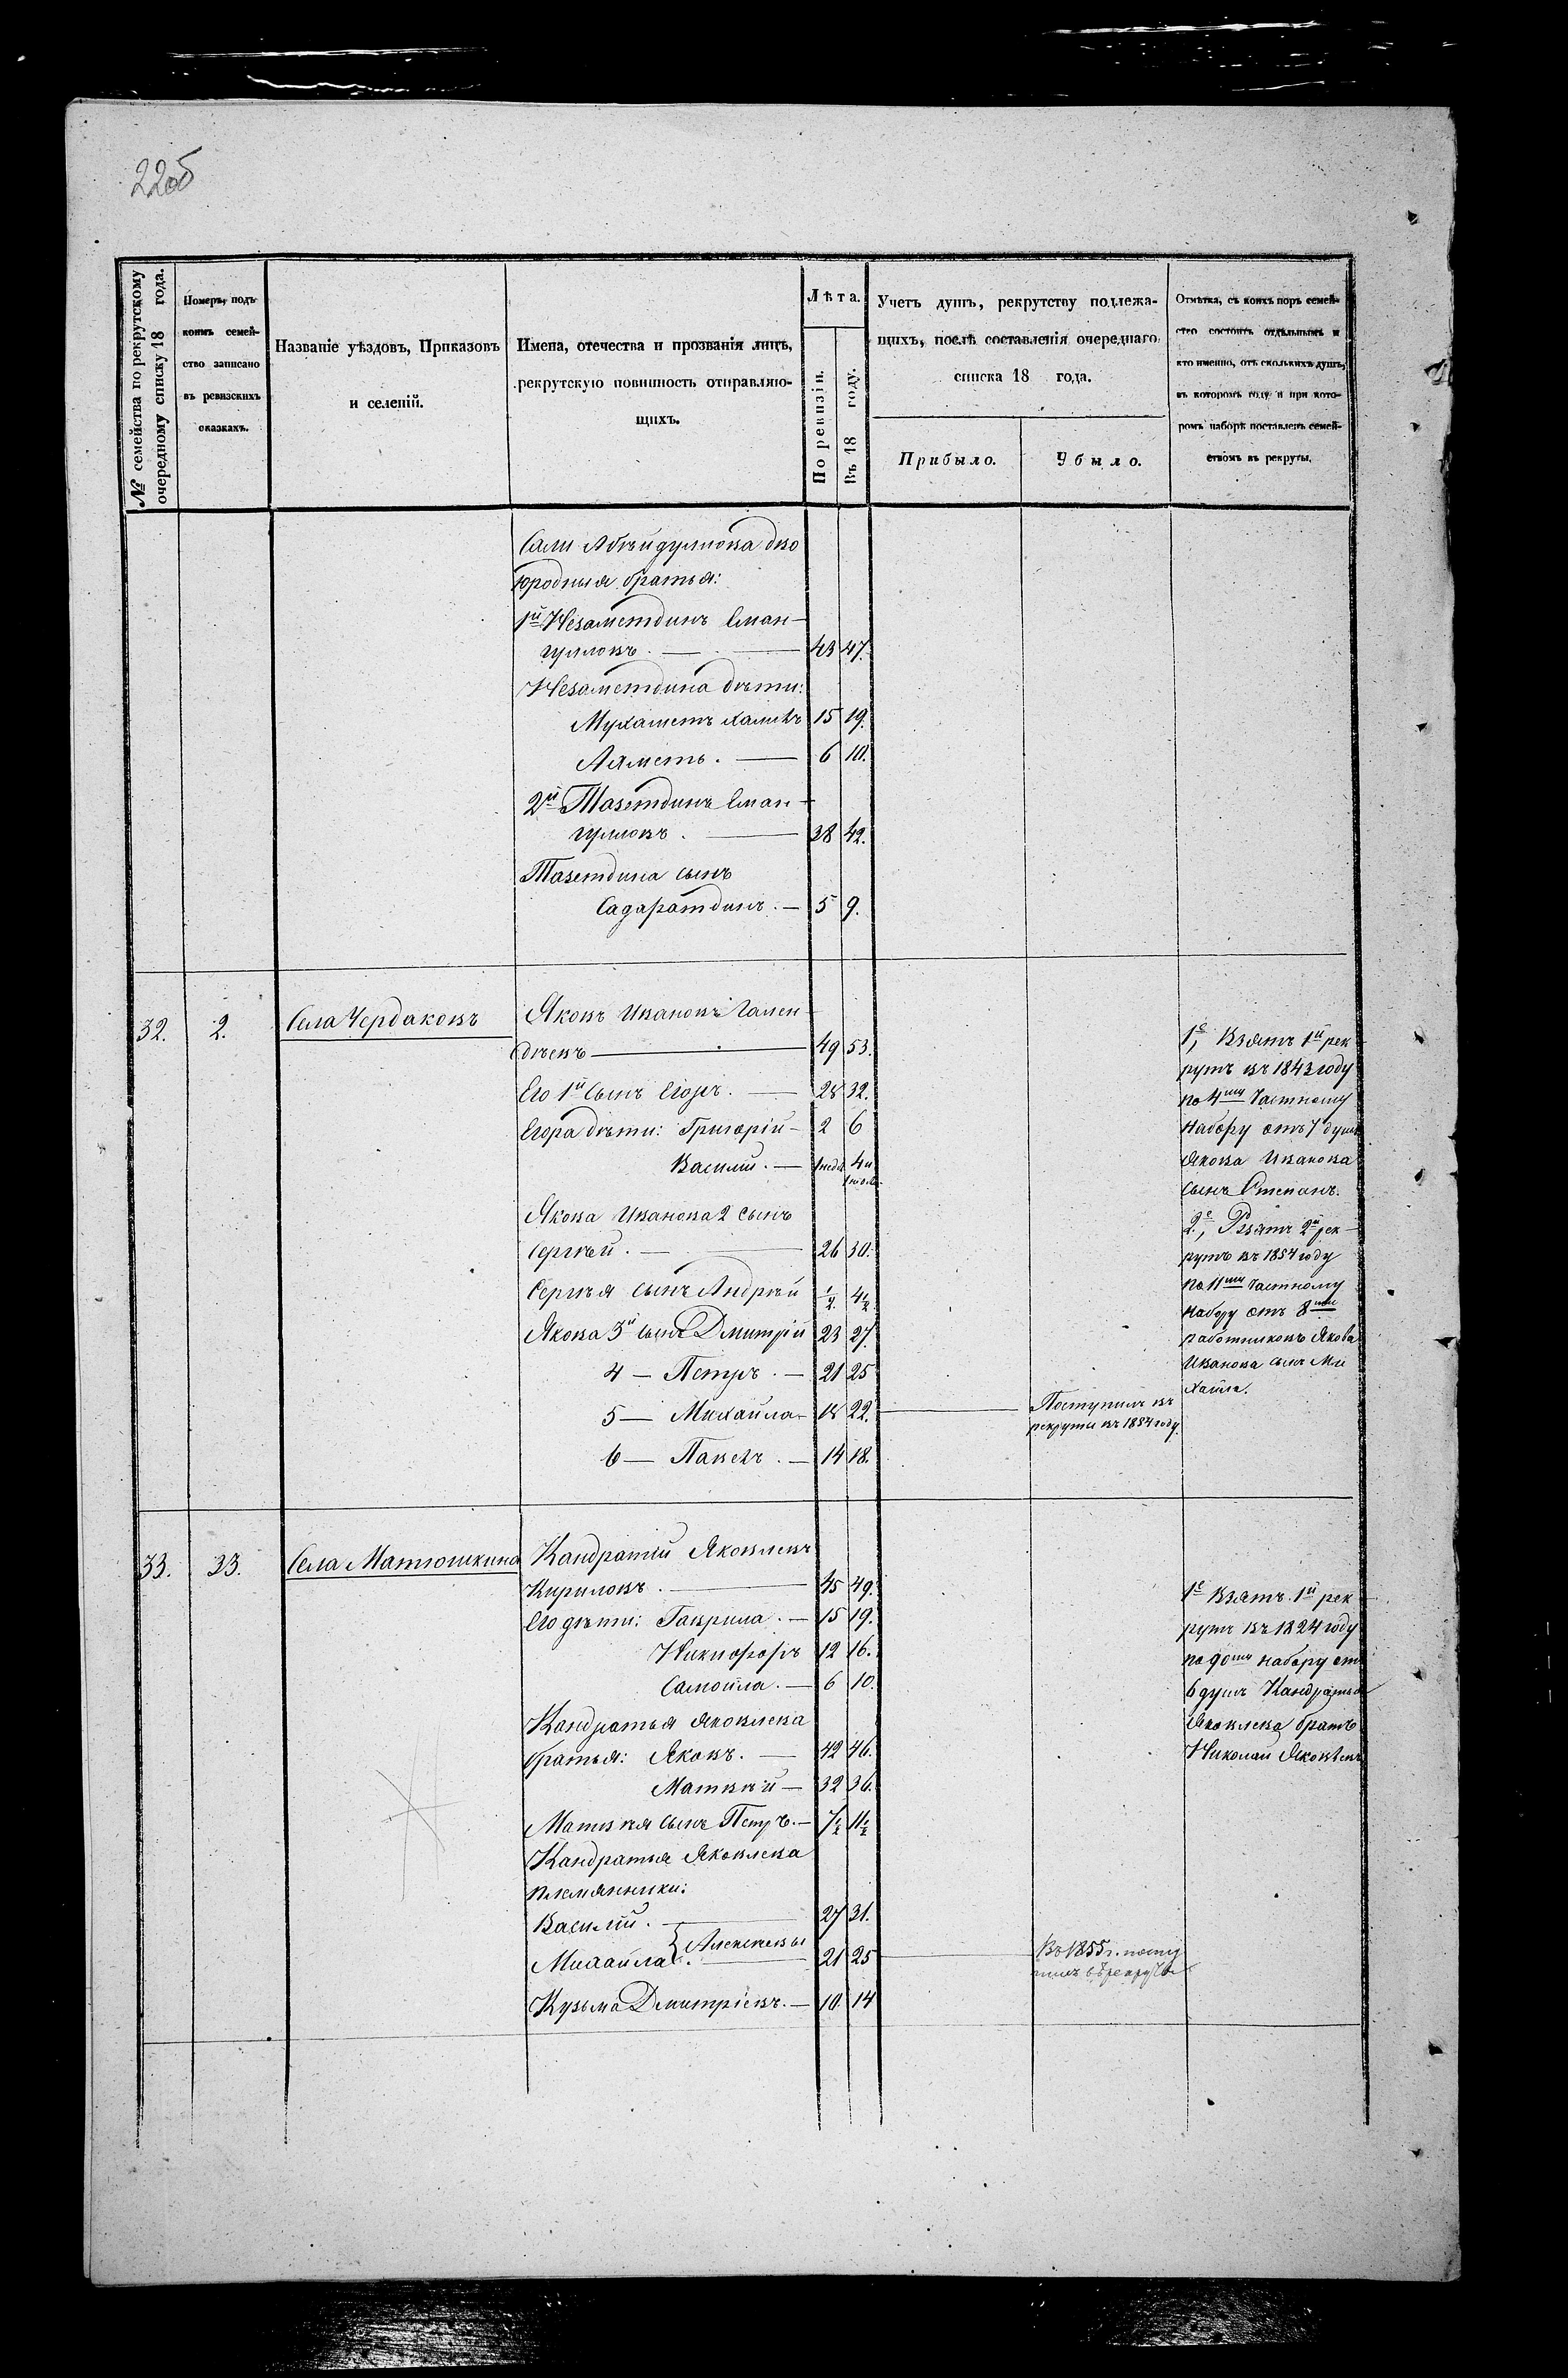 22об
№ семейства по рекрутскому очередному списку 18 года.
Номеръ, подъ коимъ семейство записано въ ревизскихъ сказкахъ.
Названіе уѣздовъ, Приказовъ и селеній.
Имена, отечества и прозванія лицъ, рекрутскую повинность отправляющихъ.
Лѣта.
По ревизіи.
Въ 18 году.
Учетъ душъ, рекрутству подлежащихъ, послѣ составленія очереднаго списка 18 года.
Прибыло.
Убыло.
Отмѣтка, съ коихъ поръ семейство состоитъ отдѣльнымъ и кто именно, отъ сколькихъ душъ, въ которомъ году и при которомъ наборѣ поставленъ семействомъ въ рекруты.
Сали дво
юродныя братья:
1й Незаметдинъ Еман-
гуловъ. — 43 47.
Незаметдина дѣти:
Мухаметъ Халитъ 15 19.
Ахметъ. — 6 10.
2й Тазетдинъ Еман-
гуловъ. — 38 42.
Тазетдина сынъ
Садаратдинъ. — 5 9.
32. 2. Села Чердаковъ Яковъ Ивановъ Гален
дѣевъ — 49 53.
Его 1й сынъ Егоръ. — 28 32.
Егора дѣти: Григорій — 2 6
Василій. — 1 нед. 4 и
1 нед.
Якова Иванова 2 сынъ
Сергѣй. — 26 30.
Сергѣя сынъ Андрѣй ½ 4½
Якова 3й сынъ Дмитрій 23 27.
4 — Петръ. — 21 25
5 — Михайла — 18 22. Поступилъ въ
рекруты въ 1854 году.
6 — Павелъ. — 14 18.
1е, Взятъ 1й рек
рутъ въ 1843 году
по 4му Частному
Набору отъ 7 душъ
Якова Иванова
сынъ Степанъ.
2е, Взятъ 2й рек-
рутъ въ 1854 году
по 11му Частному
Набору отъ 8ми
работниковъ Якова
Иванова сынъ Ми
хайла.
33. 33. Села Матюшкина Кандратій Яковлевъ
Кириловъ. — 45 49.
Его дѣти: Гаврила. — 15 19.
Никифоръ 12 16.
Самойла. — 6 10.
Кандратья Яковлева
братья: Яковъ. — 42 46.
Матвѣй — 32 36.
Матвѣя сынъ Петръ. — 7½ 11½
Кандратья Яковлева
племянники:
Василій. — 27 31.
Михайла. } Алексѣевы 21 25 Въ 1855 г. посту
пилъ въ рекруты
Кузьма Дмитріевъ. — 10. 14
1е Взятъ 1й рек
рутъ въ 1824 году
по 90му набору отъ
6 душъ Кандратья
Яковлева братъ
Николай Яковлевъ